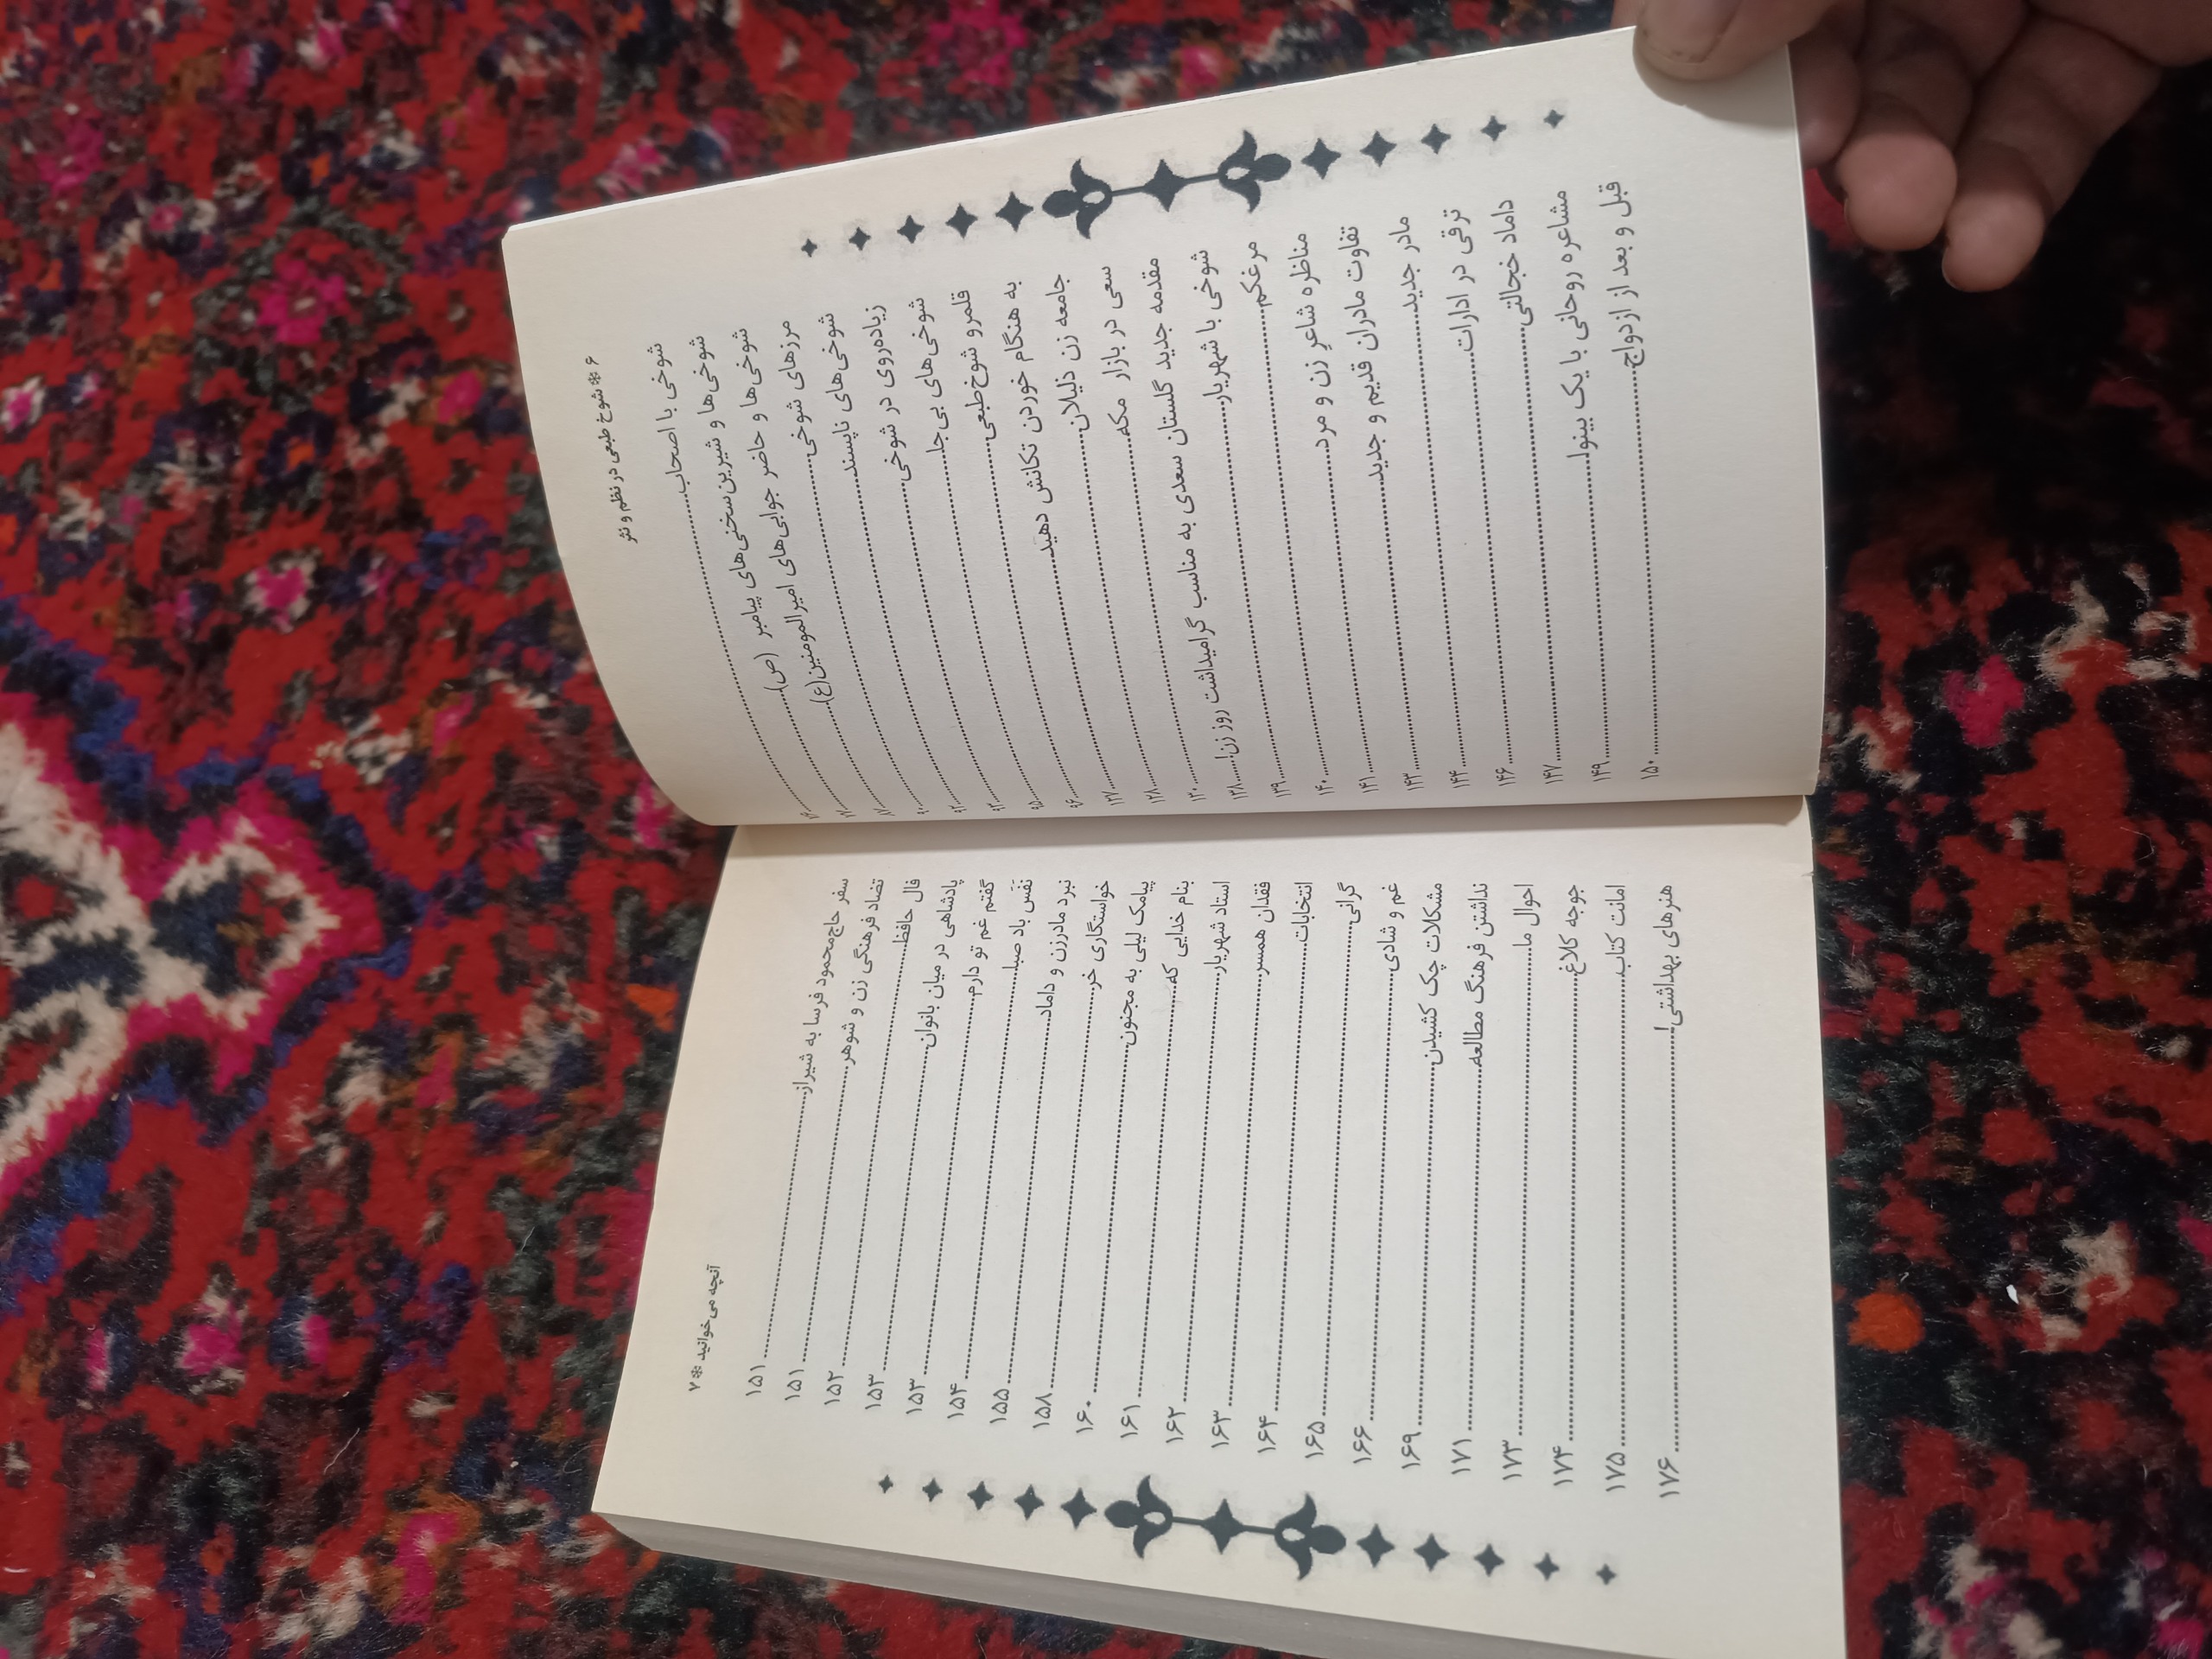 ۶ * شوخ طبعی در نظم و نثر
شوخی با اصحاب
شوخی‌ها و شیرین‌سخنی‌های پیامبر (ص)
شوخی‌ها و حاضر جوابی‌های امیرالمومنین(ع)
مرزهای شوخی
شوخی‌های ناپسند ۹۰
زیاده‌روی در شوخی ۹۲
شوخی‌های بی‌جا ۹۳
قلمرو شوخ‌طبعی ۹۵
به هنگام خوردن تکانش دهید ۹۶
جامعه زن ذلیلان ۱۲۷
سعی در بازار مکه ۱۲۸
مقدمه جدید گلستان سعدی به مناسب گرامیداشت روز زن! ۱۳۰
شوخی با شهریار ۱۳۸
مرغکم ۱۳۹
مناظره شاعرِ زن و مرد ۱۴۰
تفاوت مادران قدیم و جدید ۱۴۱
مادر جدید ۱۴۳
ترقی در ادارات ۱۴۴
داماد خجالتی ۱۴۶
مشاعره روحانی با یک بینوا ۱۴۷
قبل و بعد از ازدواج ۱۴۹
۱۵۰
آنچه می‌خوانید * ۷
سفر حاج‌محمود فرسا به شیراز ۱۵۱
تضاد فرهنگی زن و شوهر ۱۵۱
فال حافظ ۱۵۲
پادشاهی در میان بانوان ۱۵۳
گفتم غم تو دارم ۱۵۳
نفَس باد صبا ۱۵۴
نبرد مادرزن و داماد ۱۵۵
خواستگاری خر ۱۵۸
پیامک لیلی به مجنون ۱۶۰
بنام خدایی که ۱۶۱
استاد شهریار ۱۶۲
فقدان همسر ۱۶۳
انتخابات ۱۶۴
گرانی ۱۶۵
غم و شادی ۱۶۶
مشکلات چک کشیدن ۱۶۹
نداشتن فرهنگ مطالعه ۱۷۱
احوال ما ۱۷۳
جوجه کلاغ ۱۷۴
امانت کتاب ۱۷۵
هنرهای بهداشتی! ۱۷۶